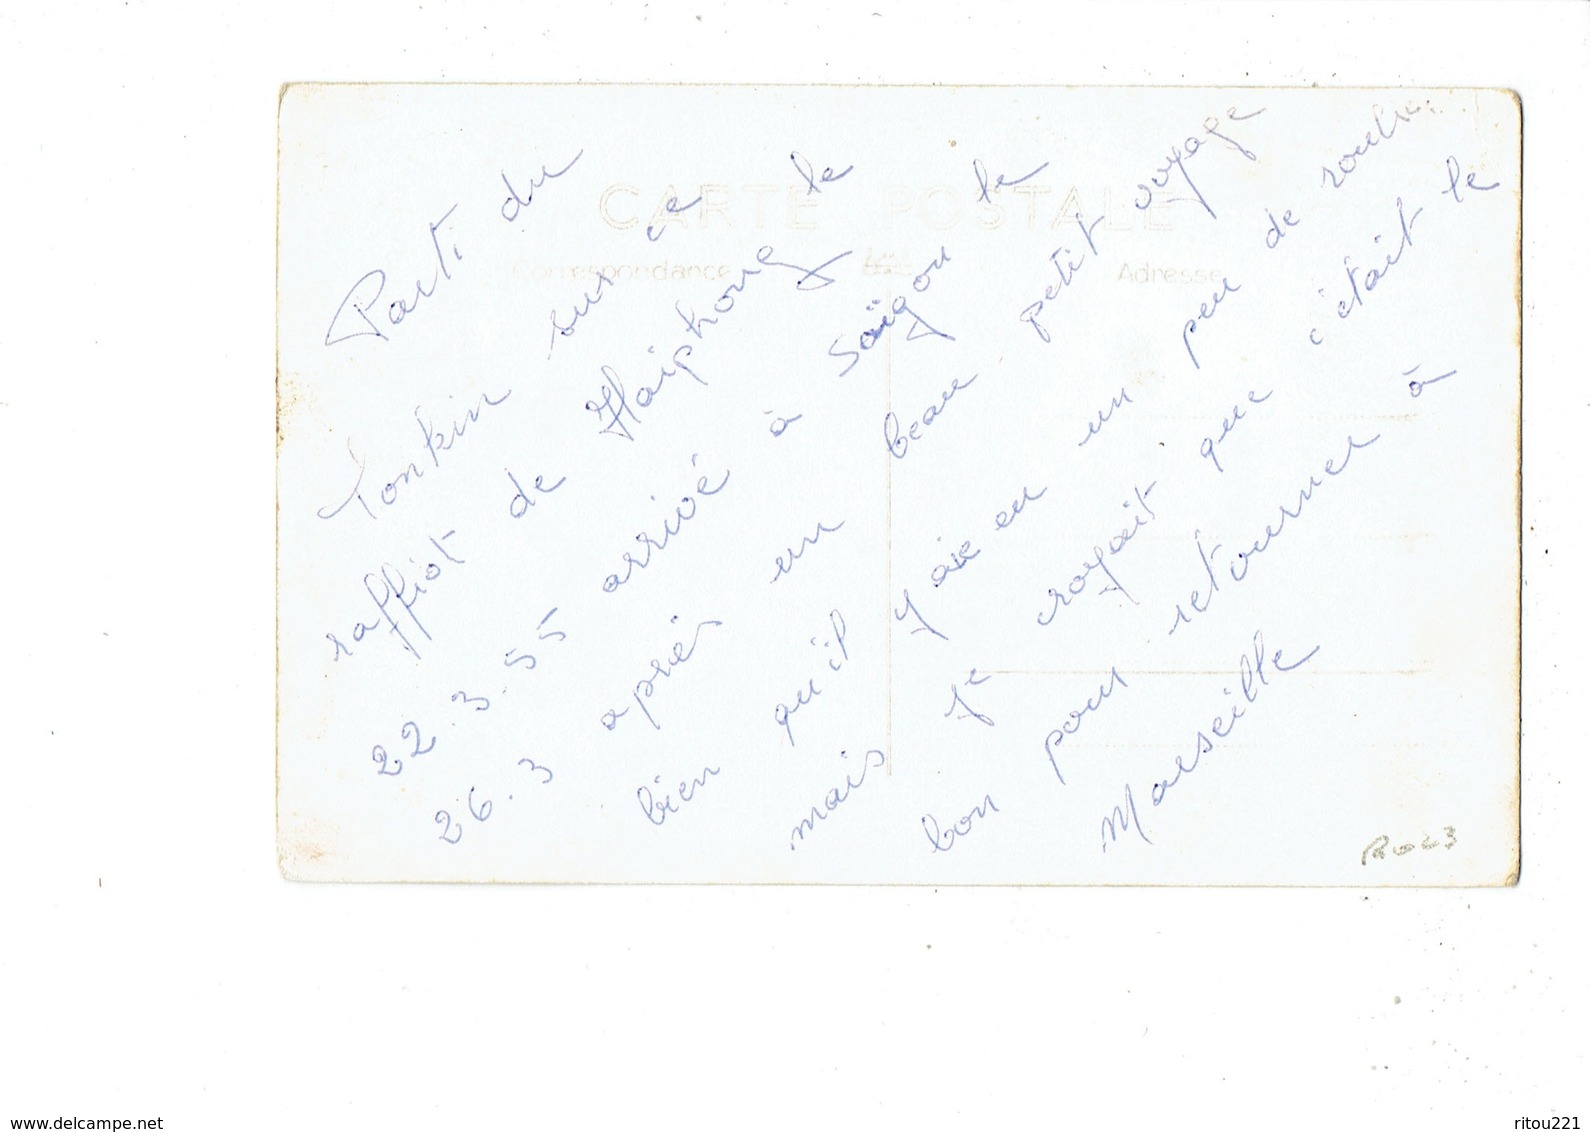 CARTE POSTALE
Correspondance
Adresse
Parti du
Tonkin sur ce
raffiot de Haïphong le
22.3.55 arrivé à Saïgon le
26.3 après un beau petit voyage
bien qu'il y aie eu un peu de roulis.
mais je croyait que c'était le
bon pour retourner à
Marseille
www.delcampe.net
ritou221